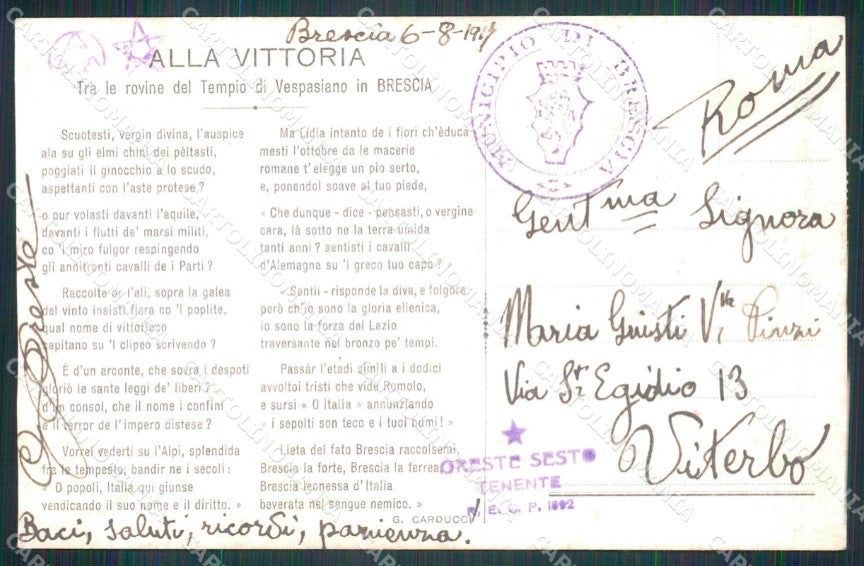 Brescia 6-8-1917
ALLA VITTORIA
Tra le rovine del Tempio di Vespasiano in BRESCIA
Scuotesti, vergin divina, l'auspice
ala su gli elmi chini dei pèltasti,
poggiati il ginocchio a lo scudo,
aspettanti con l'aste protese?
o pur volasti davanti l'aquile,
davanti i flutti de' marsi militi,
co 'l miro fulgor respingendo
gli annitrenti cavalli de i Parti?
Raccolte or l'ali, sopra la galea
del vinto insisti fiera co 'l poplite,
qual nome di vittorioso
capitano su 'l clipeo scrivendo?
È d'un arconte, che sovra i despoti
gloriò le sante leggi de' liberi?
d'un consol, che il nome i confini
e il terror de l'impero distese?
Vorrei vederti su l'Alpi, splendida
fra le tempeste, bandir ne i secoli:
" O popoli, Italia qui giunse
vendicando il suo nome e il diritto. "
Ma Lidia intanto de i fiori ch'èduca
mesti l'ottobre da le macerie
romane t'elegge un pio serto,
e, ponendol soave al tuo piede,
« Che dunque - dice - pensasti, o vergine
cara, là sotto ne la terra umida
tanti anni? sentisti i cavalli
d'Alemagna su 'l greco tuo capo?
« Sentii - risponde la diva, e folgora
però ch'io sono la gloria ellenica,
io sono la forza del Lazio
traversante nel bronzo pe' tempi.
Passâr l'etadi simili a i dodici
avvoltoi tristi che vide Romolo,
e sursi « O Italia » annunziando
i sepolti son teco e i tuoi numi! »
Lieta del fato Brescia raccolsemi,
Brescia la forte, Brescia la ferrea,
Brescia leonessa d'Italia
beverata nel sangue nemico. »
G. CARDUCCI
Oreste
Baci, saluti, ricordi, pazienza.
MUNICIPIO DI BRESCIA
Roma
Gentma Signora
Maria Giusti Va Pinzi
Via St Egidio 13
Viterbo
ORESTE SESTO
TENENTE
E. C. P. 1892
CARTOLINOMANIA